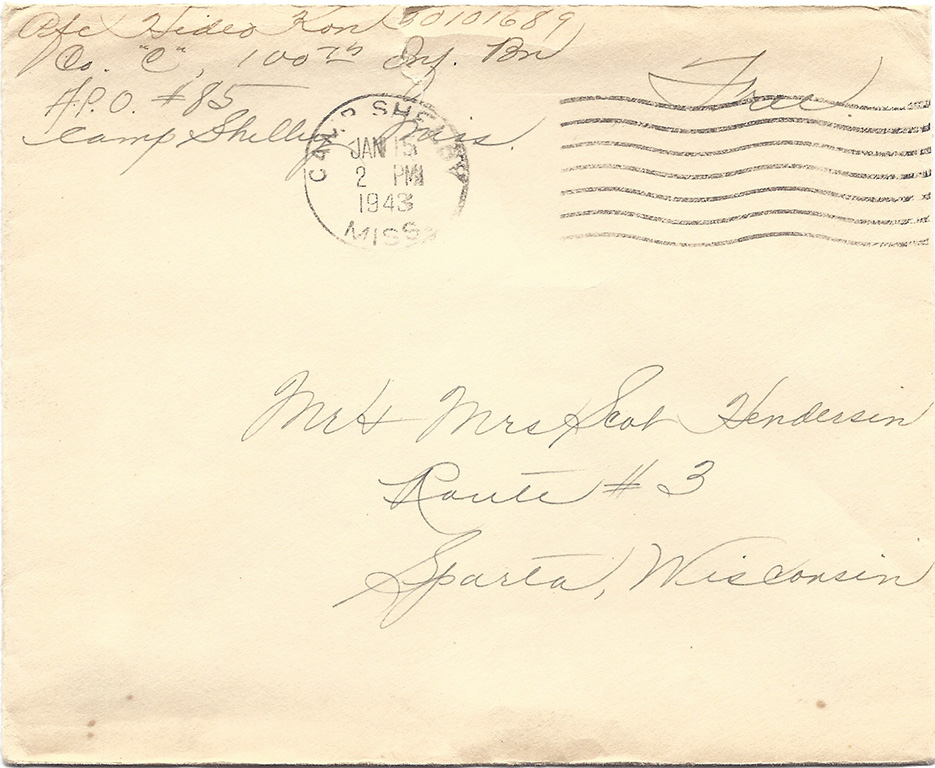 Pfc Hideo Kon 30101689
Co. "C", 100th Inf. Bn
A.P.O. #85
Camp Shelby, Miss.
Free
CAMP SHELBY
JAN 15
2 PM
1943
MISS.
Mr & Mrs Scot Hendersin
Route # 3
Sparta, Wisconsin